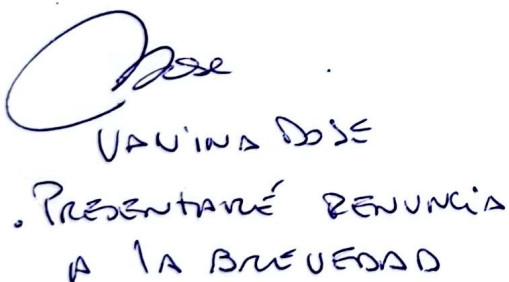 Dose
VANINA DOSE
. PRESENTARÉ RENUNCIA
A LA BREVEDAD